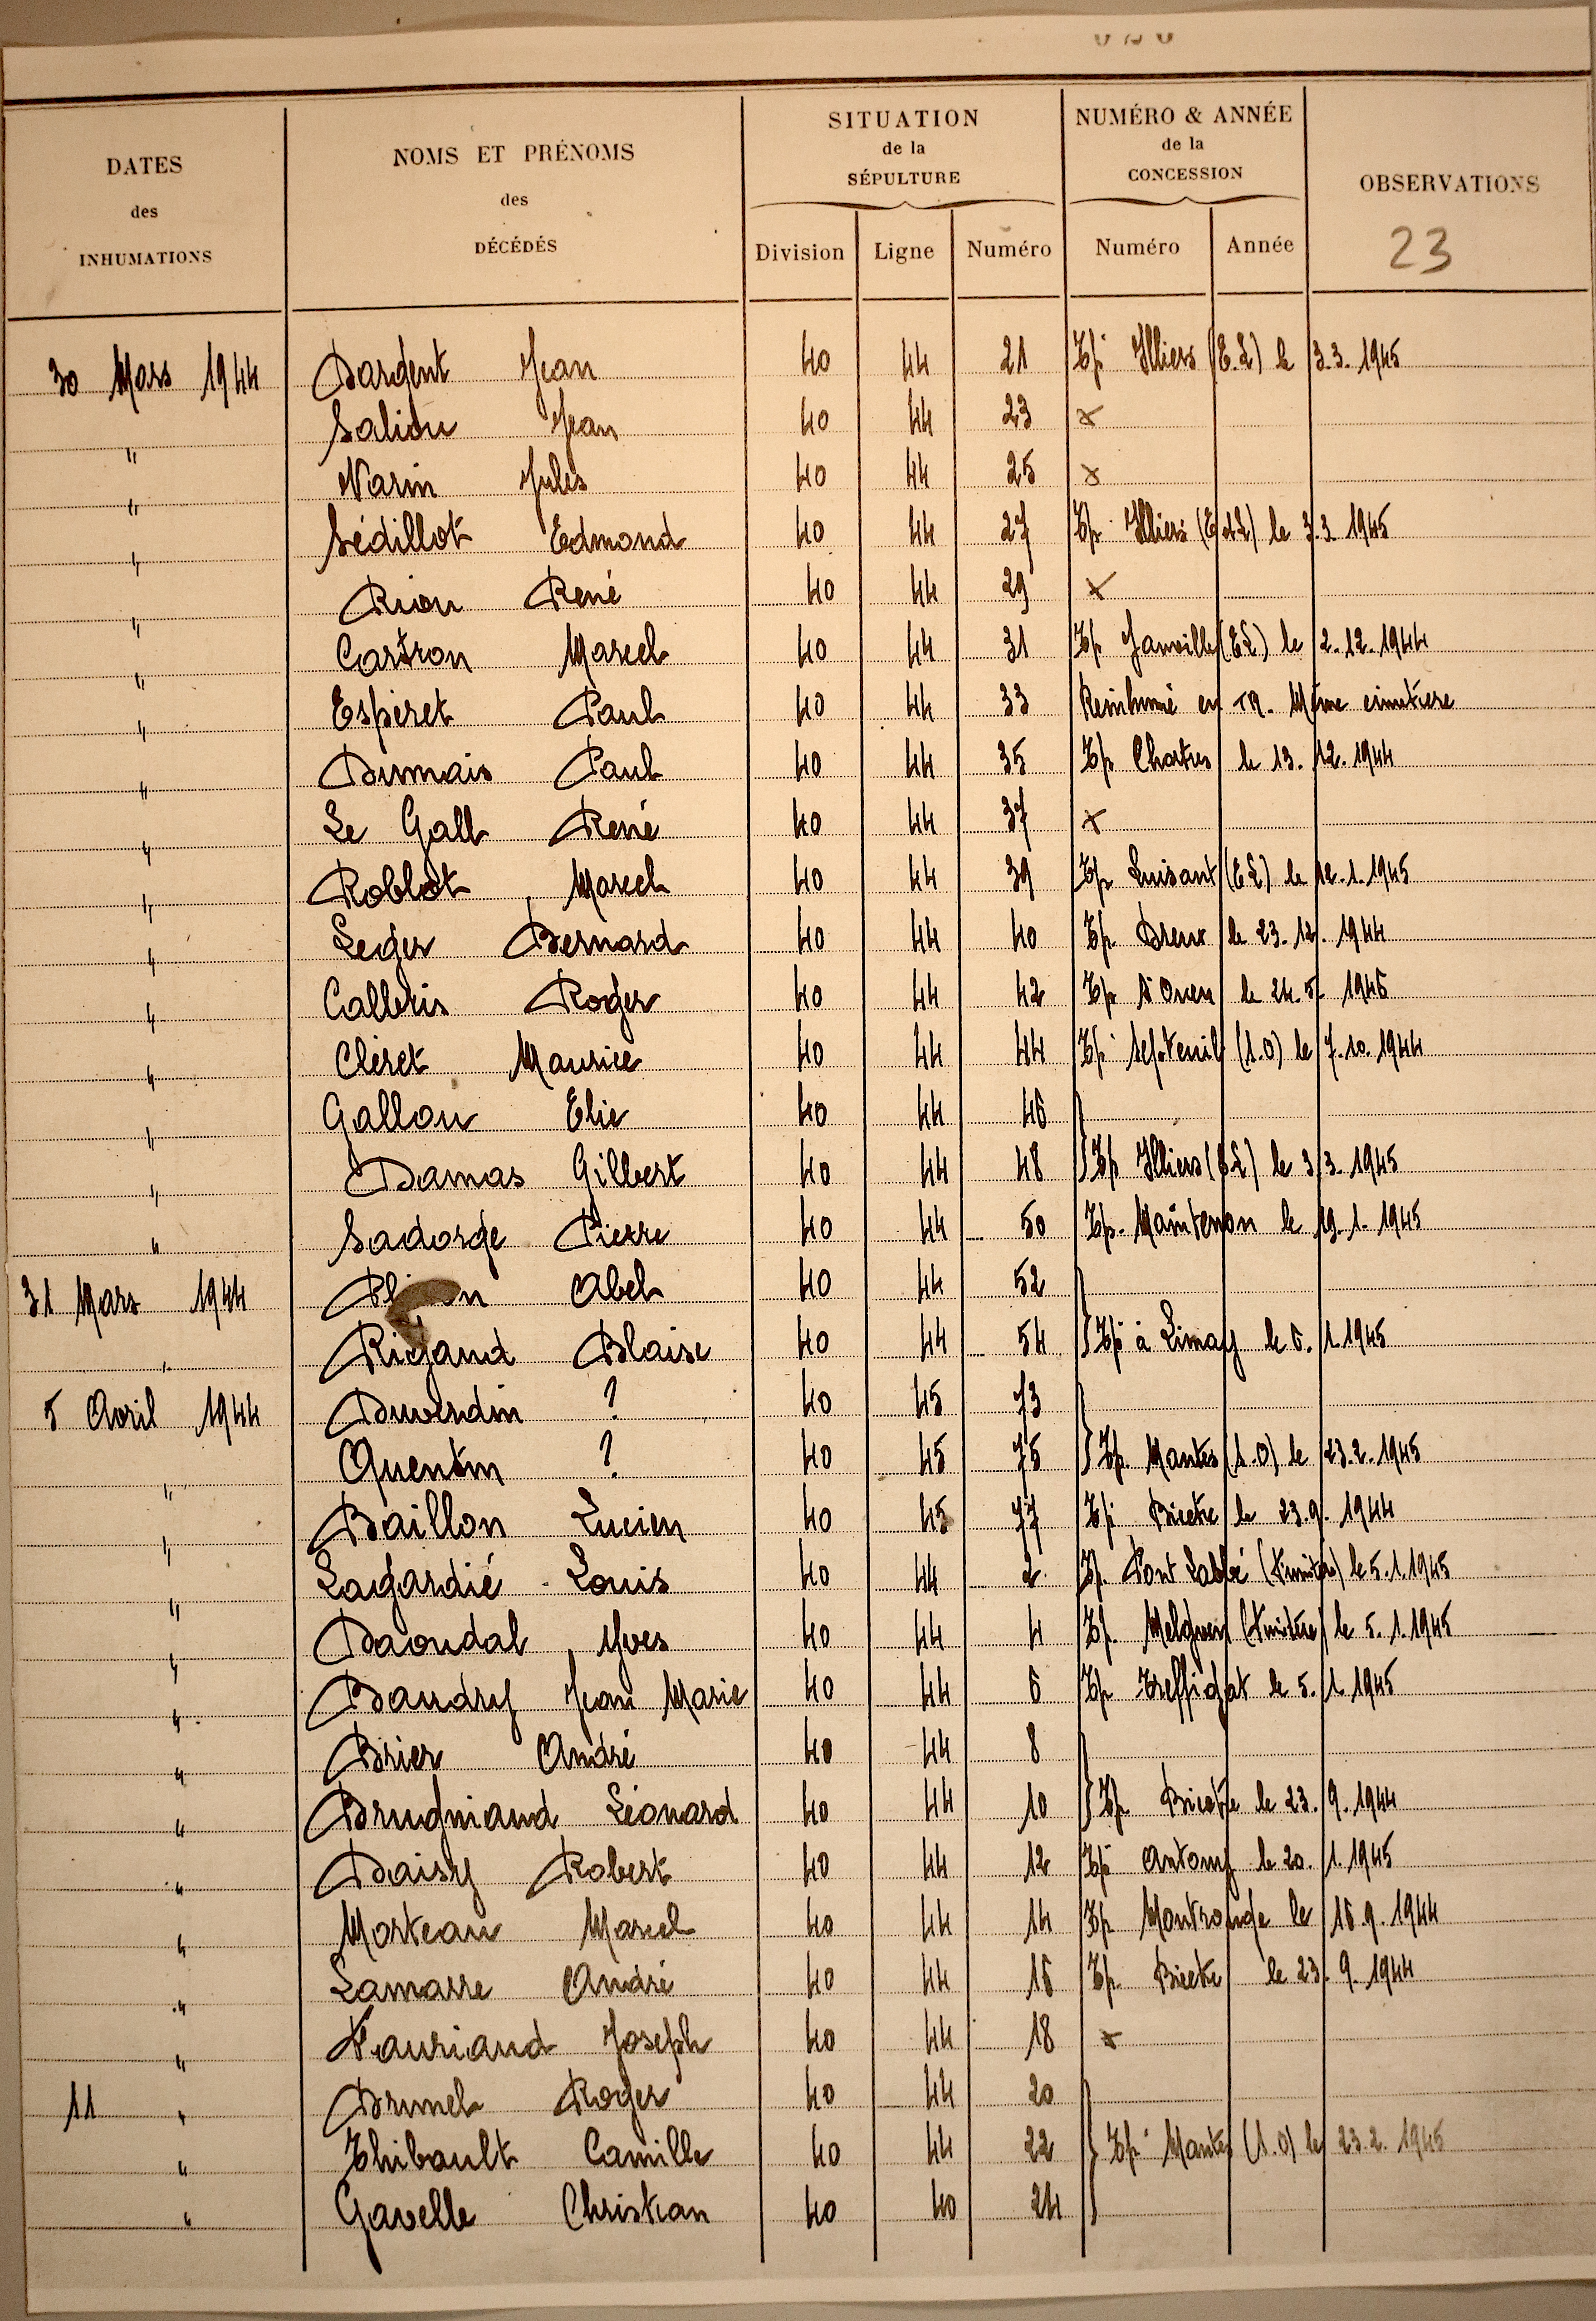 DATES
des
INHUMATIONS
NOMS ET PRÉNOMS
des
DÉCÉDÉS
SITUATION
de la
SÉPULTURE
Division Ligne Numéro
NUMÉRO & ANNÉE
de la
CONCESSION
Numéro Année
OBSERVATIONS
23
30 Mars 1944 Dargent Jean 40 44 21 Tp Illiers (E.L) le 3.3.1945
" Saliou Jean 40 44 23 x
" Narin Jules 40 44 25 x
" Sédillot Edmond 40 44 27 Tp Illiers (E et L) le 3.3.1945
" Riou René 40 44 29 x
" Castron Marcel 40 44 31 Tp Janville (EL) le 2.12.1944
" Esperet Paul 40 44 33 Reinhumé en Même cimetière
" Dumais Paul 40 44 35 Tp Chartres le 13.12.1944
" Le Gall René 40 44 37 x
" Roblot Marcel 40 44 39 Tp Luisant (EL) le 12.1.1945
" Leger Bernard 40 44 40 Tp Dreux le 23.12.1944
" Calleris Roger 40 44 42 Tp St Ouen le 24.5.1945
" Cléret Maurice 40 44 44 Tp Septeuil (S.O) le 7.10.1944
" Gallou Elie 40 44 46
" Damas Gilbert 40 44 48 Tp Illiers (E.L) le 3.3.1945
" Sadorge Pierre 40 44 50 Tp. Maintenon le 19.1.1945
31 Mars 1944 Abel 40 44 52
" Rigaud Blaise 40 44 54 Tp à Limay le 6.1.1945
5 Avril 1944 Duverdin ? 40 45 73
" Quentin ? 40 45 75 Tp. Mantes (S.O) le 23.2.1945
" Baillon Lucien 40 45 77 Tp Bicetre le 23.9.1944
" Lagardié Louis 40 44 2 Tp. Pont Labbé (Finistère) le 5.1.1945
" Daoudal Yves 40 44 4 Tp. Melgven (Finistère) le 5.1.1945
" Baudry Jean Marie 40 44 6 Tp Treffiagat le 5.1.1945
" Brier André 40 44 8
" Brugniaud Léonard 40 44 10 Tp Bicetre le 23.9.1944
" Daisy Robert 40 44 12 Tp Antony le 20.1.1945
" Morteau Marcel 40 44 14 Tp Montrouge le 16.9.1944
" Lamarre André 40 44 16 Tp. Bicetre le 23.9.1944
" Fauriaud Joseph 40 44 18 x
11 " Brunel Roger 40 44 20
" Thibault Camille 40 44 22 Tp Mantes (S.O) le 23.2.1945
" Gavelle Christian 40 40 24